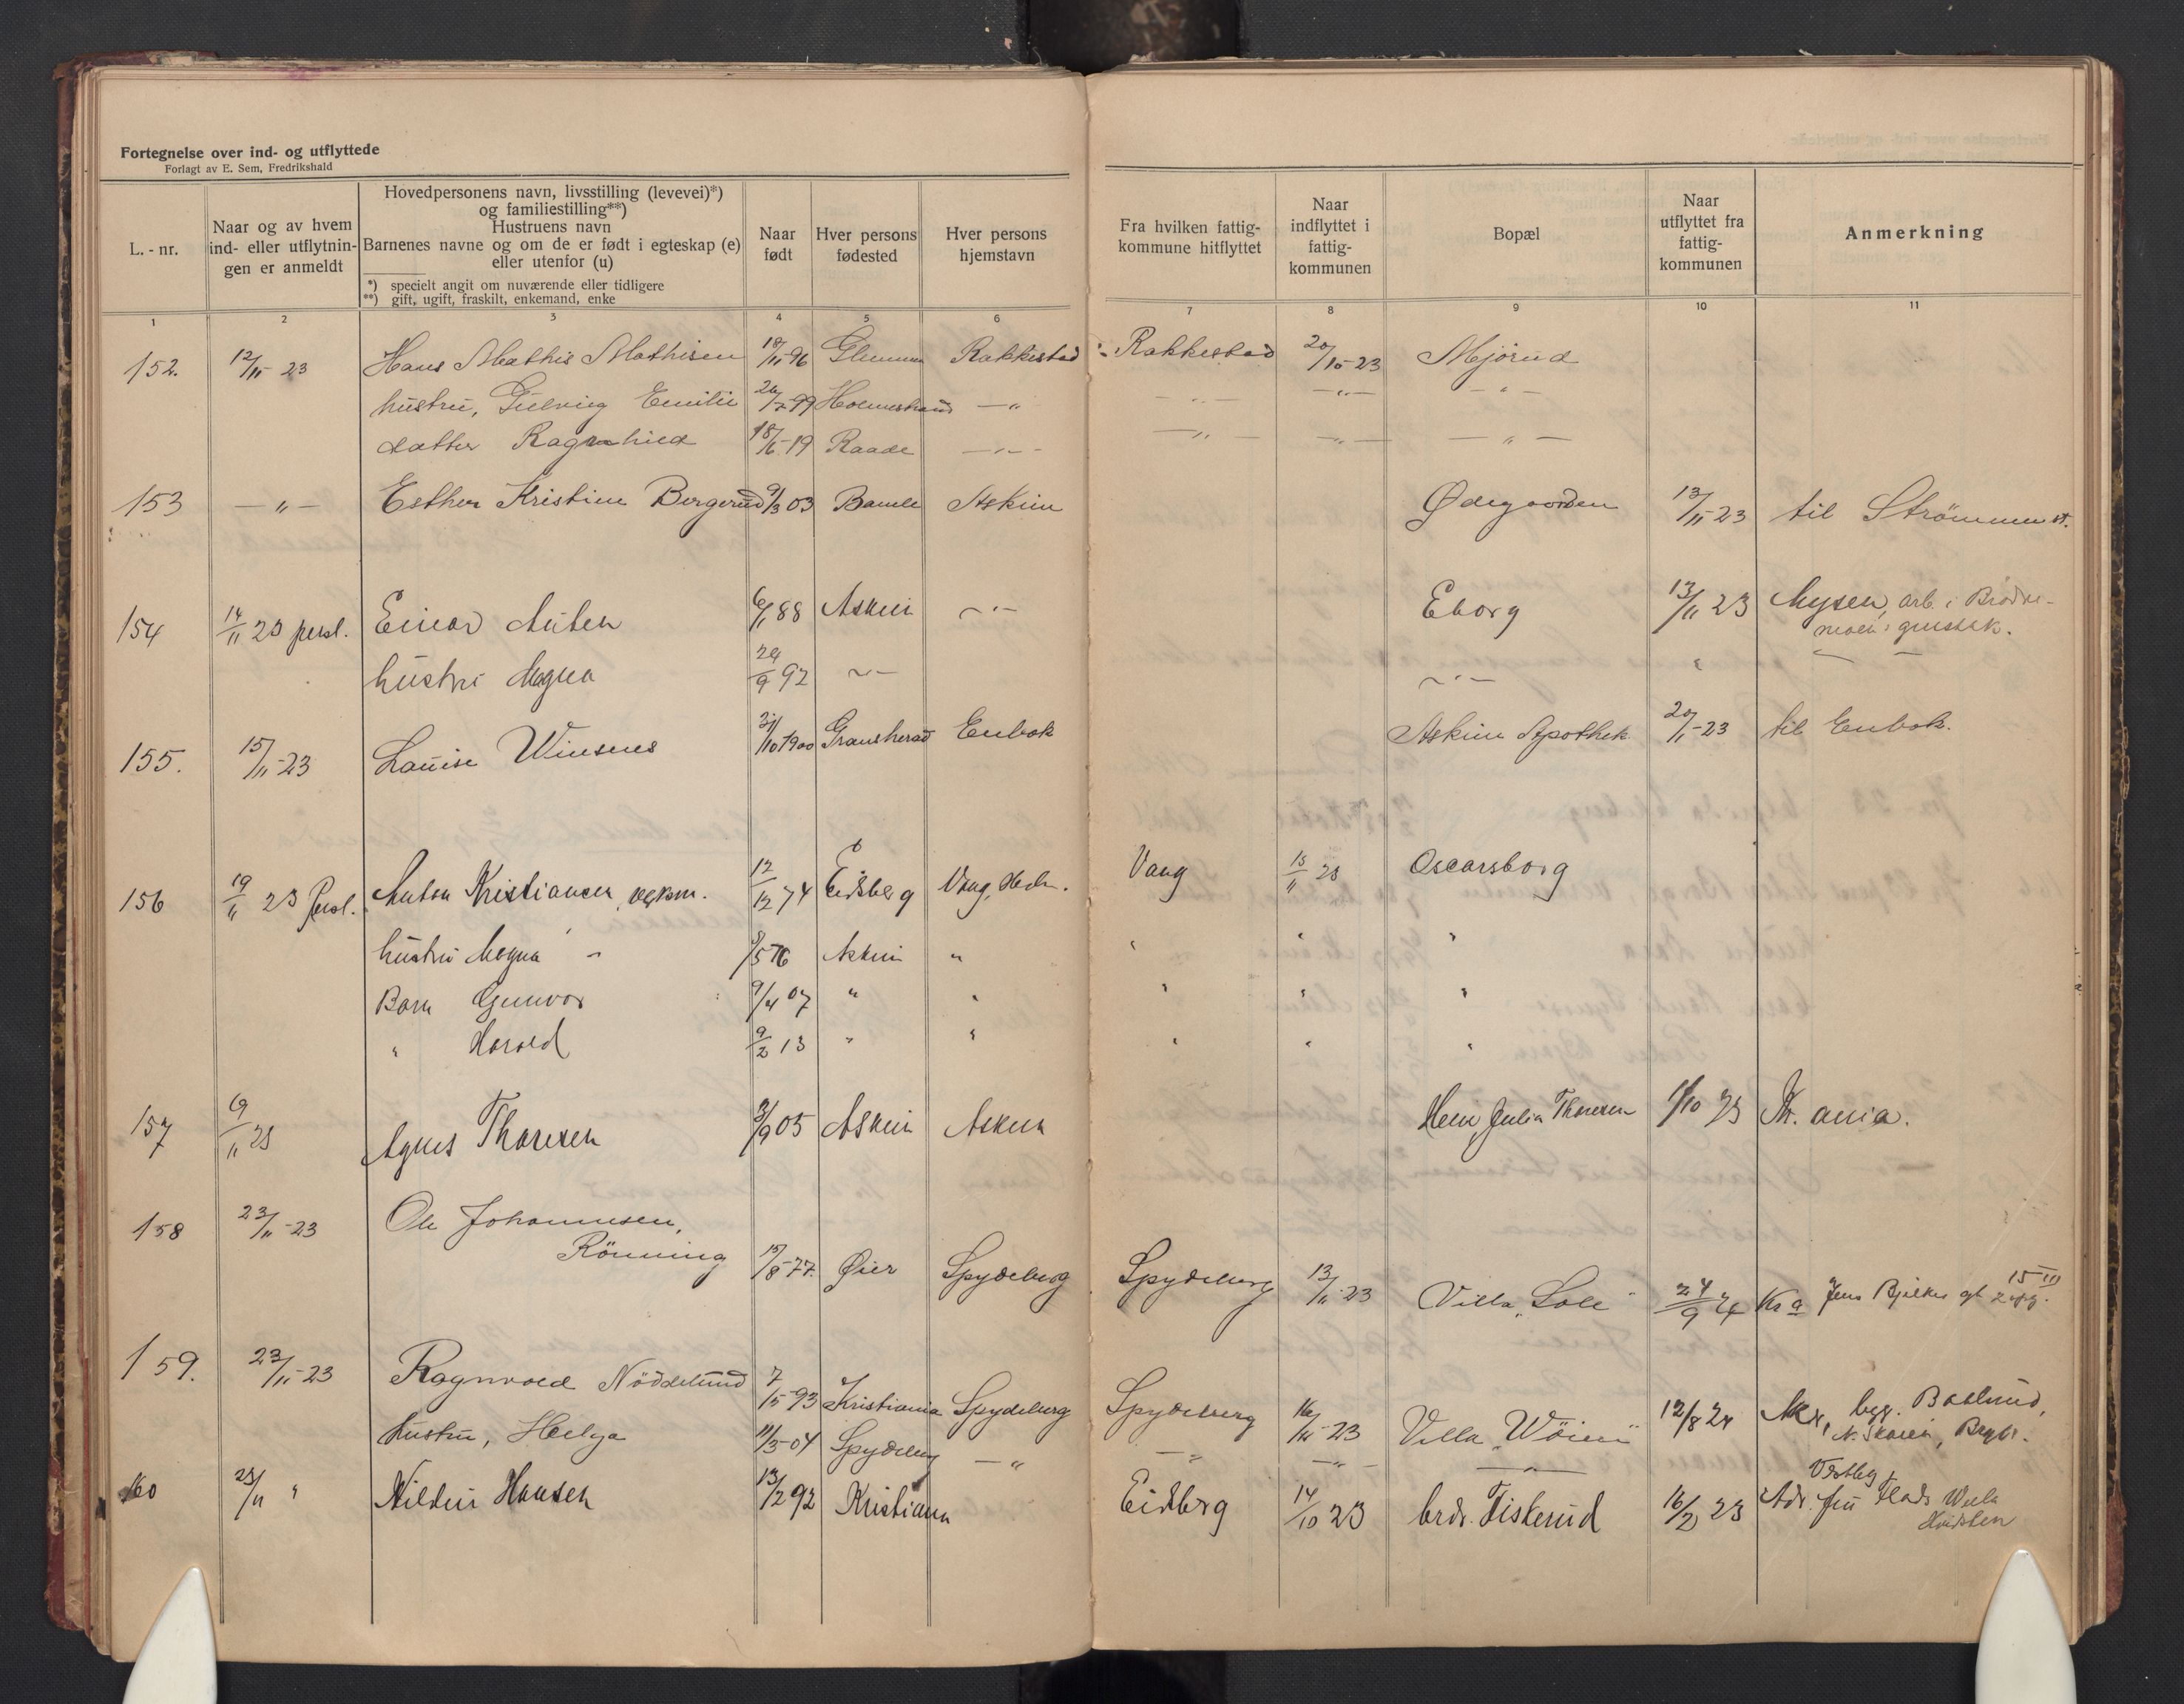 Fortegnelse over ind- og utflyttede
Forlagt av E. Sem, Fredrikshald
L. - nr.
Naar og av hvem
ind- eller utflytnin-
gen er anmeldt
Hovedpersonens navn, livsstilling (levevei)*)
og familiestilling**)
Hustruens navn
Barnenes navne og om de er født i egteskap (e)
eller utenfor (u)
*) specielt angit om nuværende eller tidligere
**) gift, ugift, fraskilt, enkemand, enke
Naar
født
Hver persons
fødested
Hver persons
hjemstavn
Fra hvilken fattig-
kommune hitflyttet
Naar
indflyttet i
fattig-
kommunen
Bopæl
Naar
utflyttet fra
fattig-
kommunen
Anmerkning
1 2 3 4 5 6 7 8 9 10 11
152. 12/11 23 Hans Mathis Mathisen 18/11 96 Glemmen Rakkestad Rakkestad 20/10-23 Mjörud
hustru, Emilie 99 Holmestrand —"— —"— —"— —"—
datter Ragnhild 18/6-19 Raade —"— —"— —"— —"—
153 —"— Esther Kristine Bergerud 9/3 03 Bamle Askim Ødegaarden 13/11-23 til Strømmen st.
154 14/11 23 persl. Einar Auten 6/1 88 Askim —"— Eborg 13/11 23 Mysen, arb. i Brødre-
hustru Magna 24/9 92 —"— —"— "
155. 15/11-23 Louise Winsnes 31/10 1900 Gransherad Enebak Askim Apothek 20/11-23 til Enebak.
156 19/11 23 Persl. Anton Kristiansen, 12/12 74 Eidsberg Vang, Hedm. Vang 15/11 23 Oscarsborg
hustru Magna " 8/5 76 Askim " " " "
Barn Gunvor 9/4 07 " " " " "
" Harald 9/2 13 " " " " "
157 19/11 23 Agnes Thoresen 3/9 05 Askim Askim Hem, Julia Thoresen 1/10 23 Kr.ania.
158 23/11-23 Ole Johannesen,
Rönning 15/8-77. Øier Spydeberg Spydeberg 13/11-23 Villa "Sole" 24/9 24 Kra Jens Bjelkes gt 15 III
159. 23/11-23 Ragnvald Nöddelund 7/5-93 Kristiania Spydeberg Spydeberg 16/11-23 Villa "Wöien" 12/8 24
hustru, Helga 11/3-04 Spydeberg —"— —"— —"— —"—
160 23/11 " Hansen 13/2 92 Kristiania Eidsberg 14/10 23 brdr. Fiskerud 16/2 23 Vestby
Adr. fru
Hvidsten